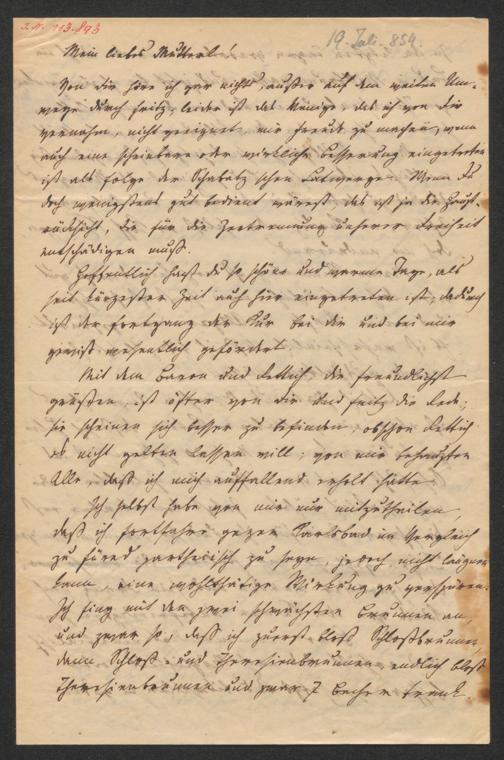 I.N. 113.893
19. Juli. 859.
Mein liebes Mutterl!
Von dir höre ich gar nichts, außer auf dem weiten Um-
wege durch Fritz; leider ist das Wenige, das ich von dir
vernehme, nicht geeignet, mir Freude zu machen, wenn
auch eine scheinbare oder wirkliche Besserung eingetreten
ist als Folge der schen Latwerge. Wenn du
doch wenigstens gut bedient wärest, das ist ja die Haupt-
rücksicht, die für die Zertrennung unserer Dreiheit
entschädigen muß.
Hoffentlich hast du so schöne und warme Tage, als
seit kürzester Zeit auch hier eingetreten ist, dadurch
ist der Fortgang der Kur bei dir und bei mir
gewiß wesentlich gefördert.
Mit dem Baron und Rettich, die freundlichst
grüßen, ist öfter von dir und Fritz die Rede;
sie scheinen sich besser zu befinden, obschon Rettich
es nicht gelten lassen will; von mir behaupten
Alle, daß ich mich auffallend erholt hätte.
Ich selbst habe von mir nur mitzutheilen,
daß ich fortfahre gegen Karlsbad im Vergleich
zu Füred partheiisch zu seyn, jedoch nicht läugnen
kann, eine wohlthätige Wirkung zu verspüren.
Ich fing mit den zwei schwächsten Brunnen an,
und zwar so, daß ich zuerst bloß Schloßbrunnen,
dann Schloß- und Theresienbrunnen, endlich bloß
Theresienbrunnen und zwar 7 Becher trank